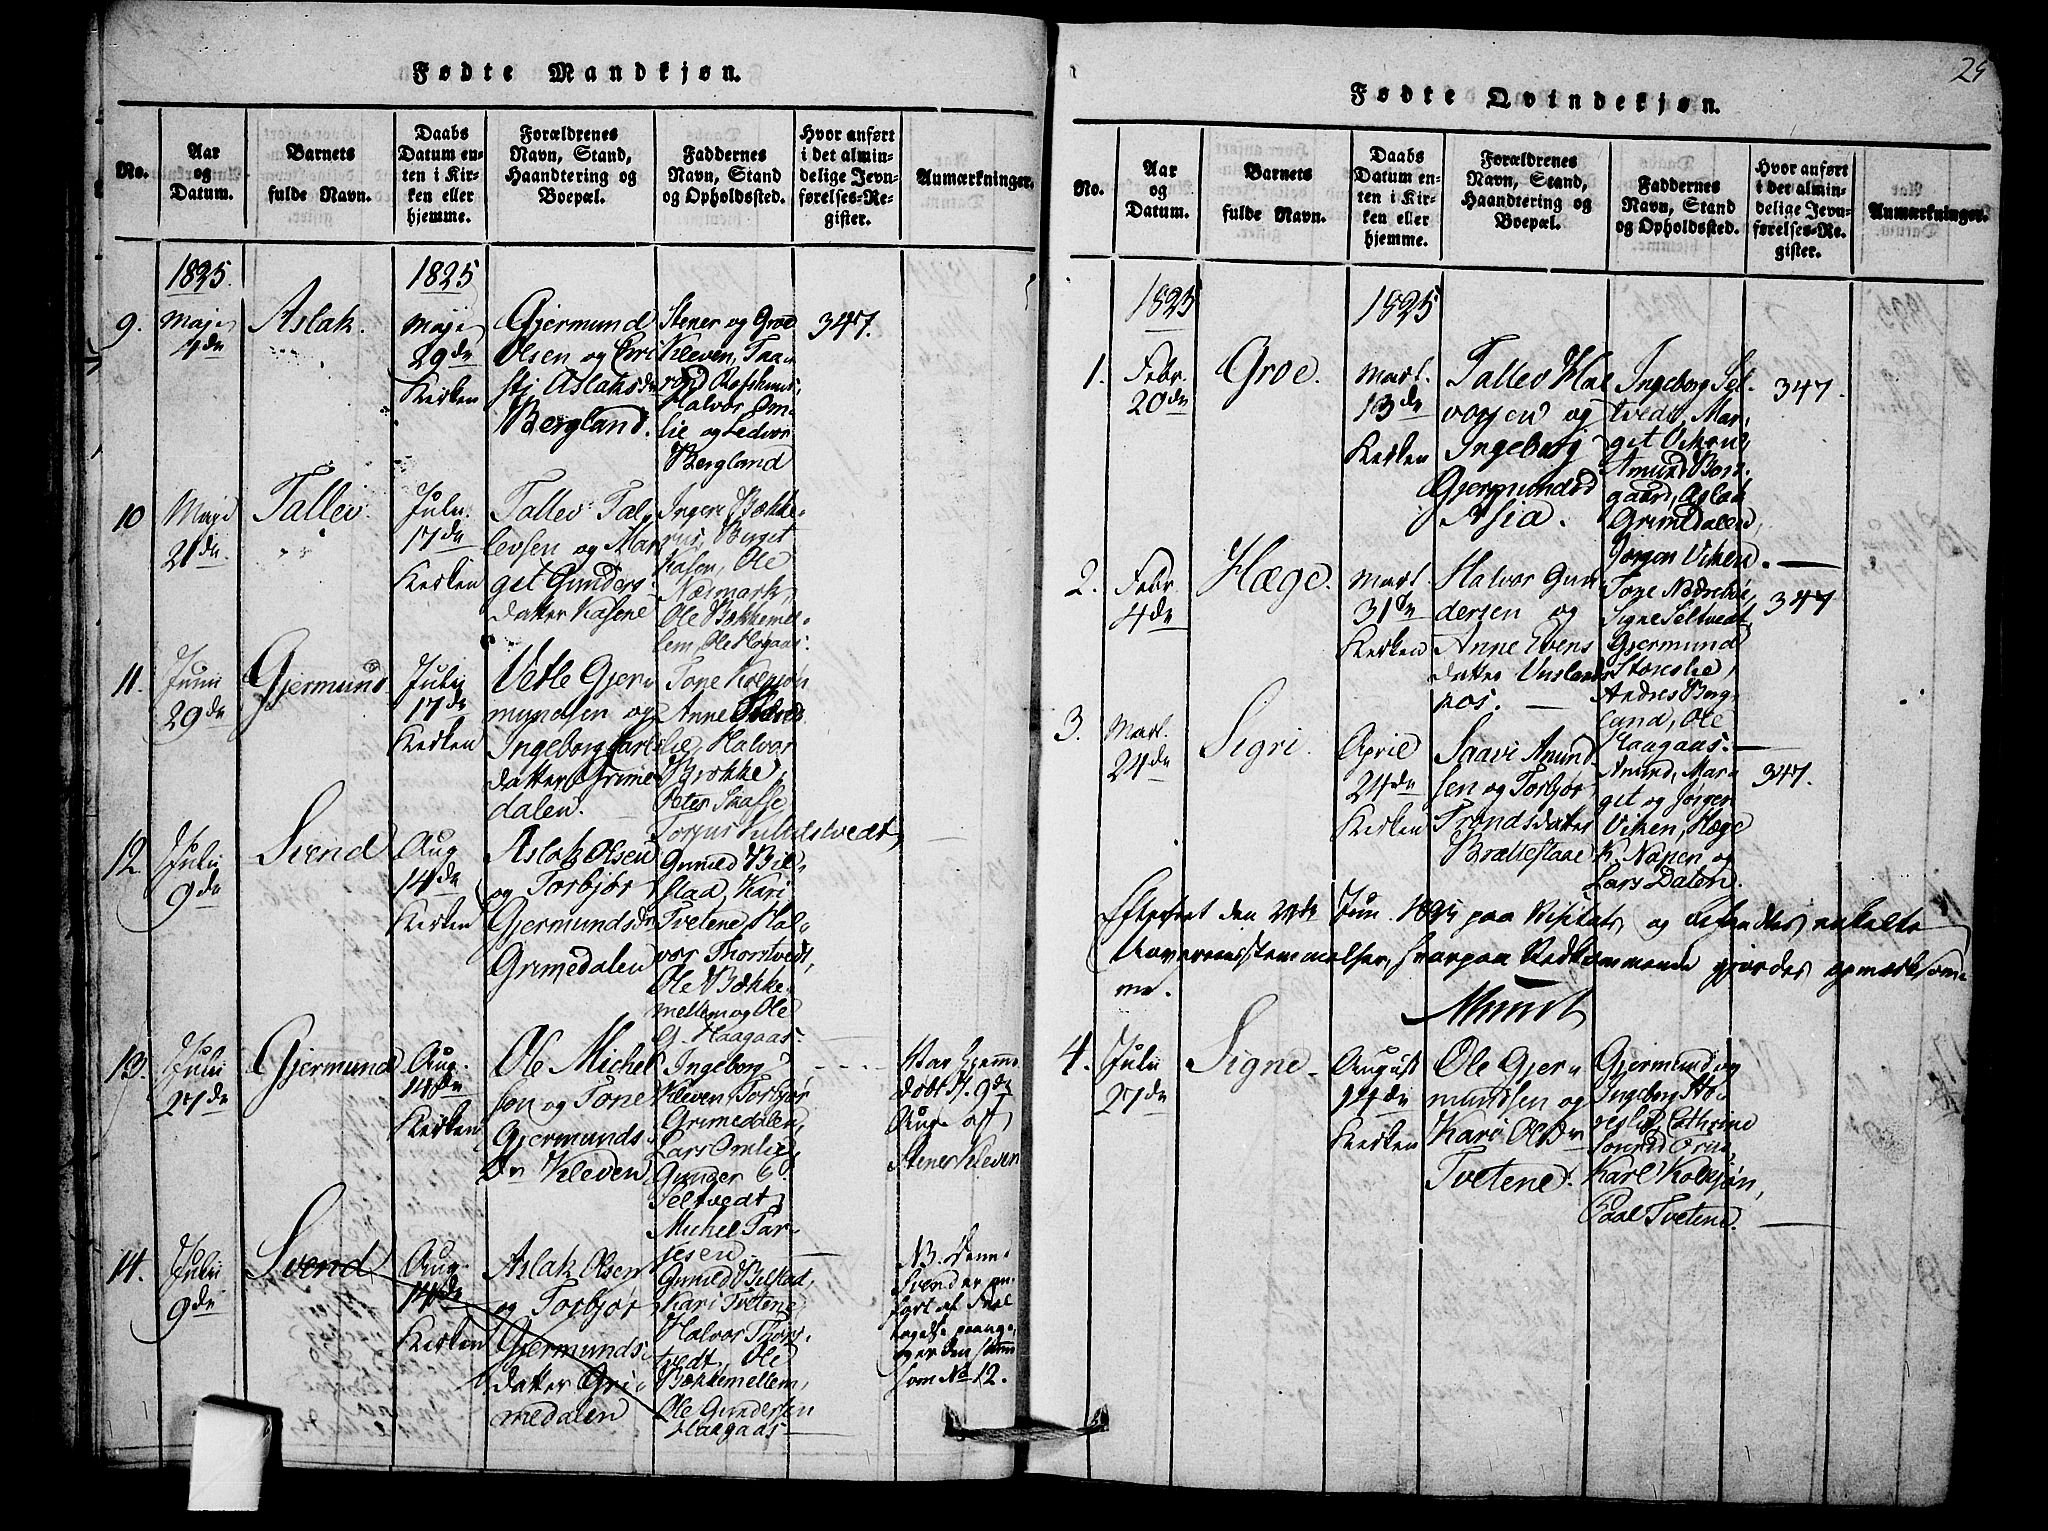 Fødte Mandkjøn.
No.
Aar
og
Datum.
Barnets
fulde Navn.
Daabs
Datum en-
ten i Kir-
ken eller
hjemme.
Forældrenes
Navn, Stand,
Haandtering og
Boepæl.
Faddernes
Navn, Stand
og Opholdssted.
Hvor anført
i det almin-
delige Jevn-
førelses-Re-
gister.
Anmærkninger.
1825.
1825
9.
Maji
4de
Aslak.
Maji
29de
Kirken
Gjermund
Olsen og
Aslaksdr
Bergland.
Stener og Groe
Kleven, Taa-
Halvor Om-
lie og
Bergland
347.
10
Maji
21de
Tallev.
Julii
17de
Kirken
Tallev Tal-
levsen og Mar
git Gunders-
datter Kasene
Ingeri Bække-
Birgit
Kasen, Ole
Næsmark,
Ole Bækkemel-
lem, Ole Hogaas.
11.
Junii
29de
Gjermund
Julii
17de
Kirken
Vetle Gjer
mundsen og
Ingeborg Karls
datter Grime
dalen.
Tone Kolsjøn
Anne
lie, Halvor
Brække,
Peter Skafse
12.
Julii
9de
Svend
Aug
14de
Kirken
Aslak Olsen
og Torbjør
Gjermundsdr
Grimedalen
Gunild Bil-
stad, Kari
Tvetene, Hal-
vor Thorstvedt,
Ole Bække-
mellem og Ole
G. Haagaas.
13.
Julii
27de
Gjermund
Aug.
14de
Kirken
Ole Michel
sen og Tone
Gjermunds-
Dr Kleven
Ingeborg
Kleven, Torbjør
Grimedalen,
Lars Omlie,
Gunder G.
Seltvedt,
Michel Tar-
jesen
Var hjemme
døbt d. 9de
Aug. af
Stener Kleven
14.
Julii
9de
Svend
Aug.
14de
Kirken
Aslak Olsen
og Torbjør
Gjermunds-
datter Gri-
medalen
Gunild Bilstad,
Kari Tvetene
Halvor Thors-
tvedt, Ole
Bækkemellem,
Ole Gundersen
Haagaas
NB. Denne
Svend er an-
ført af Feil
tagelse
og er den samme
som No 12.
25
Fødte Qvindekjøn.
No.
Aar
og
Datum.
Barnets
fulde Navn.
Daabs
Datum en-
ten i Kir-
ken eller
hjemme.
Forældrenes
Navn, Stand,
Haandtering og
Boepæl.
Faddernes
Navn, Stand
og Opholdssted.
Hvor anført
i det almin-
delige Jevn-
førelses-Re-
gister.
Anmærkninger.
1825
1825
1.
Febr.
20de
Groe.
Mart.
13de
Kirken
Tallev Hal
vorsen og
Ingeborg
Gjermundsd
Asia.
Ingeborg Sel-
tvedt, Mar-
git Viken,
Amund Bor-
gaard, Aslak
Grimedalen,
Jørgen Viken.
347.
2.
Febr.
4de
Hæge.
Mart.
31te
Kirken
Halvor Gun
dersen og
Anne Evens
datter
Tone Nordbø,
Signe Seltvedt,
Gjermund
Stoneslie,
Andres Berg-
land, Ole
Haagaas.
347
3.
Mart.
24de
Sigri.
April
24de
Kirken
Saavi Amund
sen og Torbjør
Trondsdatter
Brættestaae
Amund, Mar-
git og Jørgen
Viken, Hæge
K. Napen og
Lars Dalen.
347.
Efterseet den 24de Juni 1825 paa Visitats, og befandtes enkelte
Uoverensstemmelser, hvorpaa Vedkommende gjordes opmærksom-
me.
Munch
4.
Julii
27de
Signe.
August
14de
Kirken
Ole Gjer-
mundsen og
Kari Olsdr
Tvetene.
Gjermund og
Ingeborg Sto-
reslie, Cathrine
Karl Kolsjøn,
Paal Tvetene.